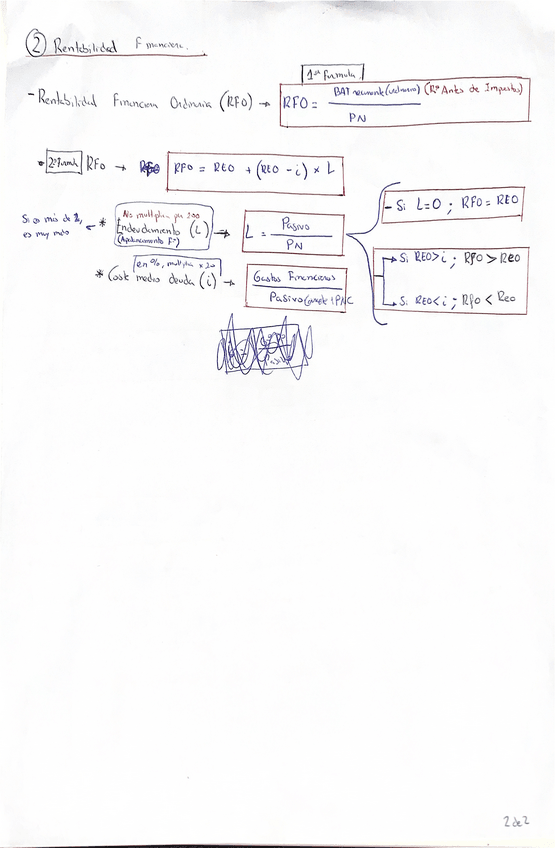 2 Rentabilidad Financiera.
1ª Formula
- Rentabilidad Financiera Ordinaria (RFO) → RFO = BAT recurrente (ordinario) (Rº Antes de Impuestos)
PN
• 2ª Formula RFO → RFO = REO + (REO - i) × L
- Si L=0 ; RFO = REO
Si es más de 1, es muy malo
* No multiplica por 100
Endeudamiento (L) → L = Pasivo
PN
(Apalancamiento Fº)
Si REO > i ; RFO > REO
en %, multiplica × 100
* Coste medio deuda (i) → Gastos Financieros
Pasivo
Si REO < i ; RFO < REO
2 de 2